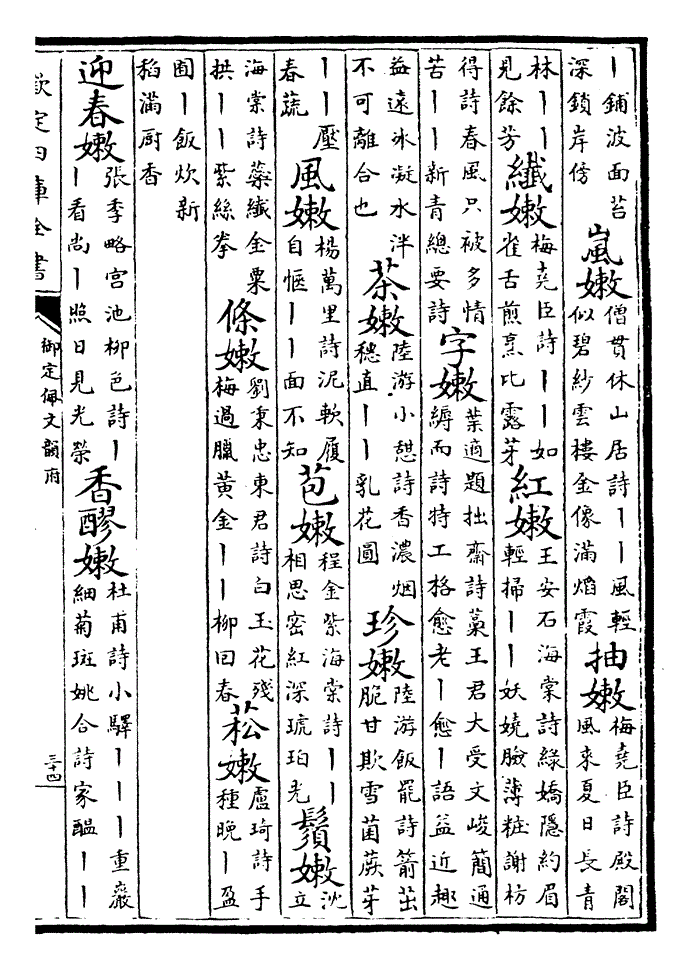 丨鋪波面苔
深鎖岸傍
嵐嫩
僧貫休山居詩丨丨風輕
似碧紗雲樓金像滿熖霞
抽嫩
梅堯臣詩殿閣
風來夏日長青
林丨丨
見餘芳
纖嫩
梅堯臣詩丨丨如
雀舌煎烹比露芽
紅嫩
王安石海棠詩綠嬌隱約眉
輕掃丨丨妖嬈臉薄粧謝枋
得詩春風只被多情
苦丨丨新青總要詩
字嫩
葉適題拙齋詩藁王君大受文峻簡通
縟而詩特工格愈老丨愈丨語益近趣
益遠氷凝水泮
不可離合也
茶嫩
陸游小憩詩香濃烟
穗直丨丨乳花圓
珍嫩
陸游飯罷詩箭茁
脆甘欺雪菌蕨芽
丨丨壓
春蔬
風嫩
楊萬里詩泥軟履
自愜丨丨面不知
苞嫩
程金紫海棠詩丨丨
相思密紅深琥珀光
鬚嫩
沈
立
海棠詩蘂纖金粟
拱丨丨紫絲拳
條嫩
劉秉忠東君詩白玉花殘
梅過臘黃金丨丨柳回春
菘嫩
盧琦詩手
種晚丨盈
囿丨飯炊新
稻滿厨香
迎春嫩
張季略宫池柳色詩丨
看尚丨照日見光榮
香醪嫩
杜甫詩小驛丨丨丨重巖
細菊斑姚合詩家醖丨丨
欽定四庫全書
御定佩文韻府
三十四